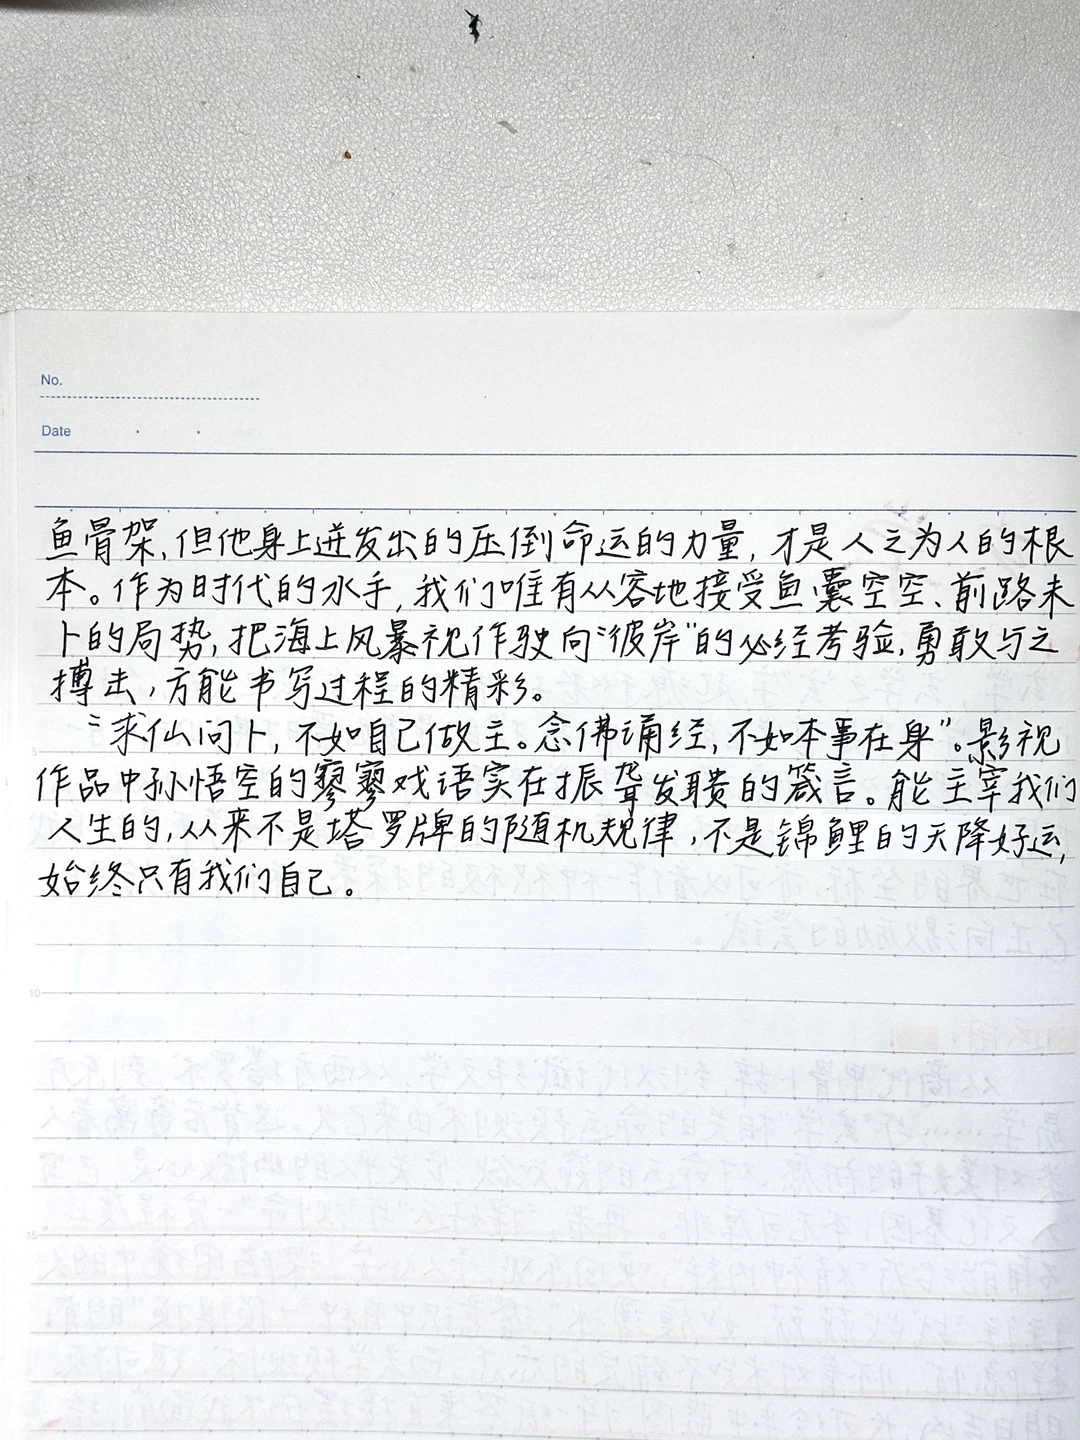 No.
Date
鱼骨架,但他身上迸发出的压倒命运的力量,才是人之为人的根
本。作为时代的水手,我们唯有从容地接受鱼囊空空、前路未
卜的局势,把海上风暴视作驶向“彼岸”的必经考验,勇敢与之
搏击,方能书写过程的精彩。
“求仙问卜,不如自己做主。念佛诵经,不如本事在身”。影视
作品中孙悟空的寥寥戏语实在振聋发聩的箴言。能主宰我们
人生的,从来不是塔罗牌的随机规律,不是锦鲤的天降好运,
始终只有我们自己。
5
10
15